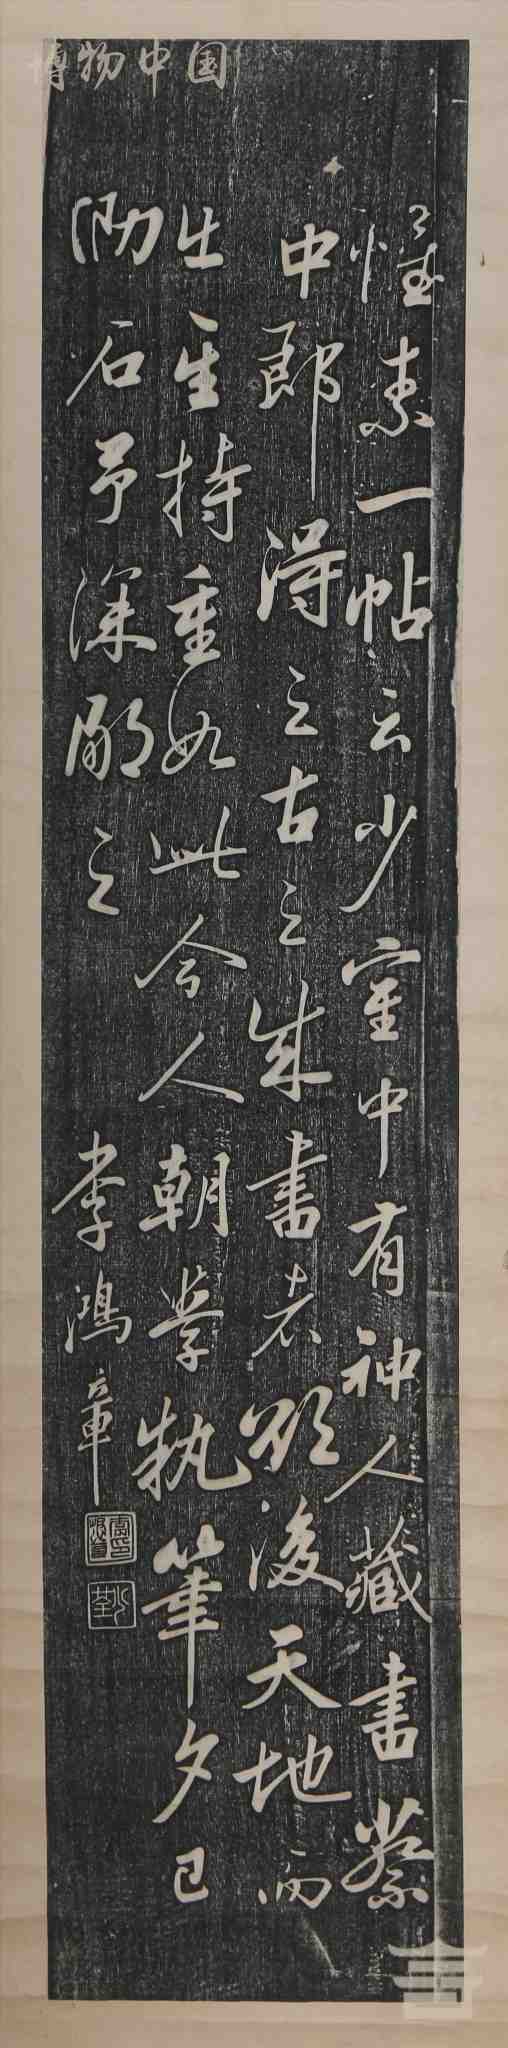 博物中国
怀素一帖云少室中有神人藏书蔡
中郎得之古之成书者欲后天地而
出其持重如此今人朝学执笔夕已
勒石予深鄙之
李鸿章